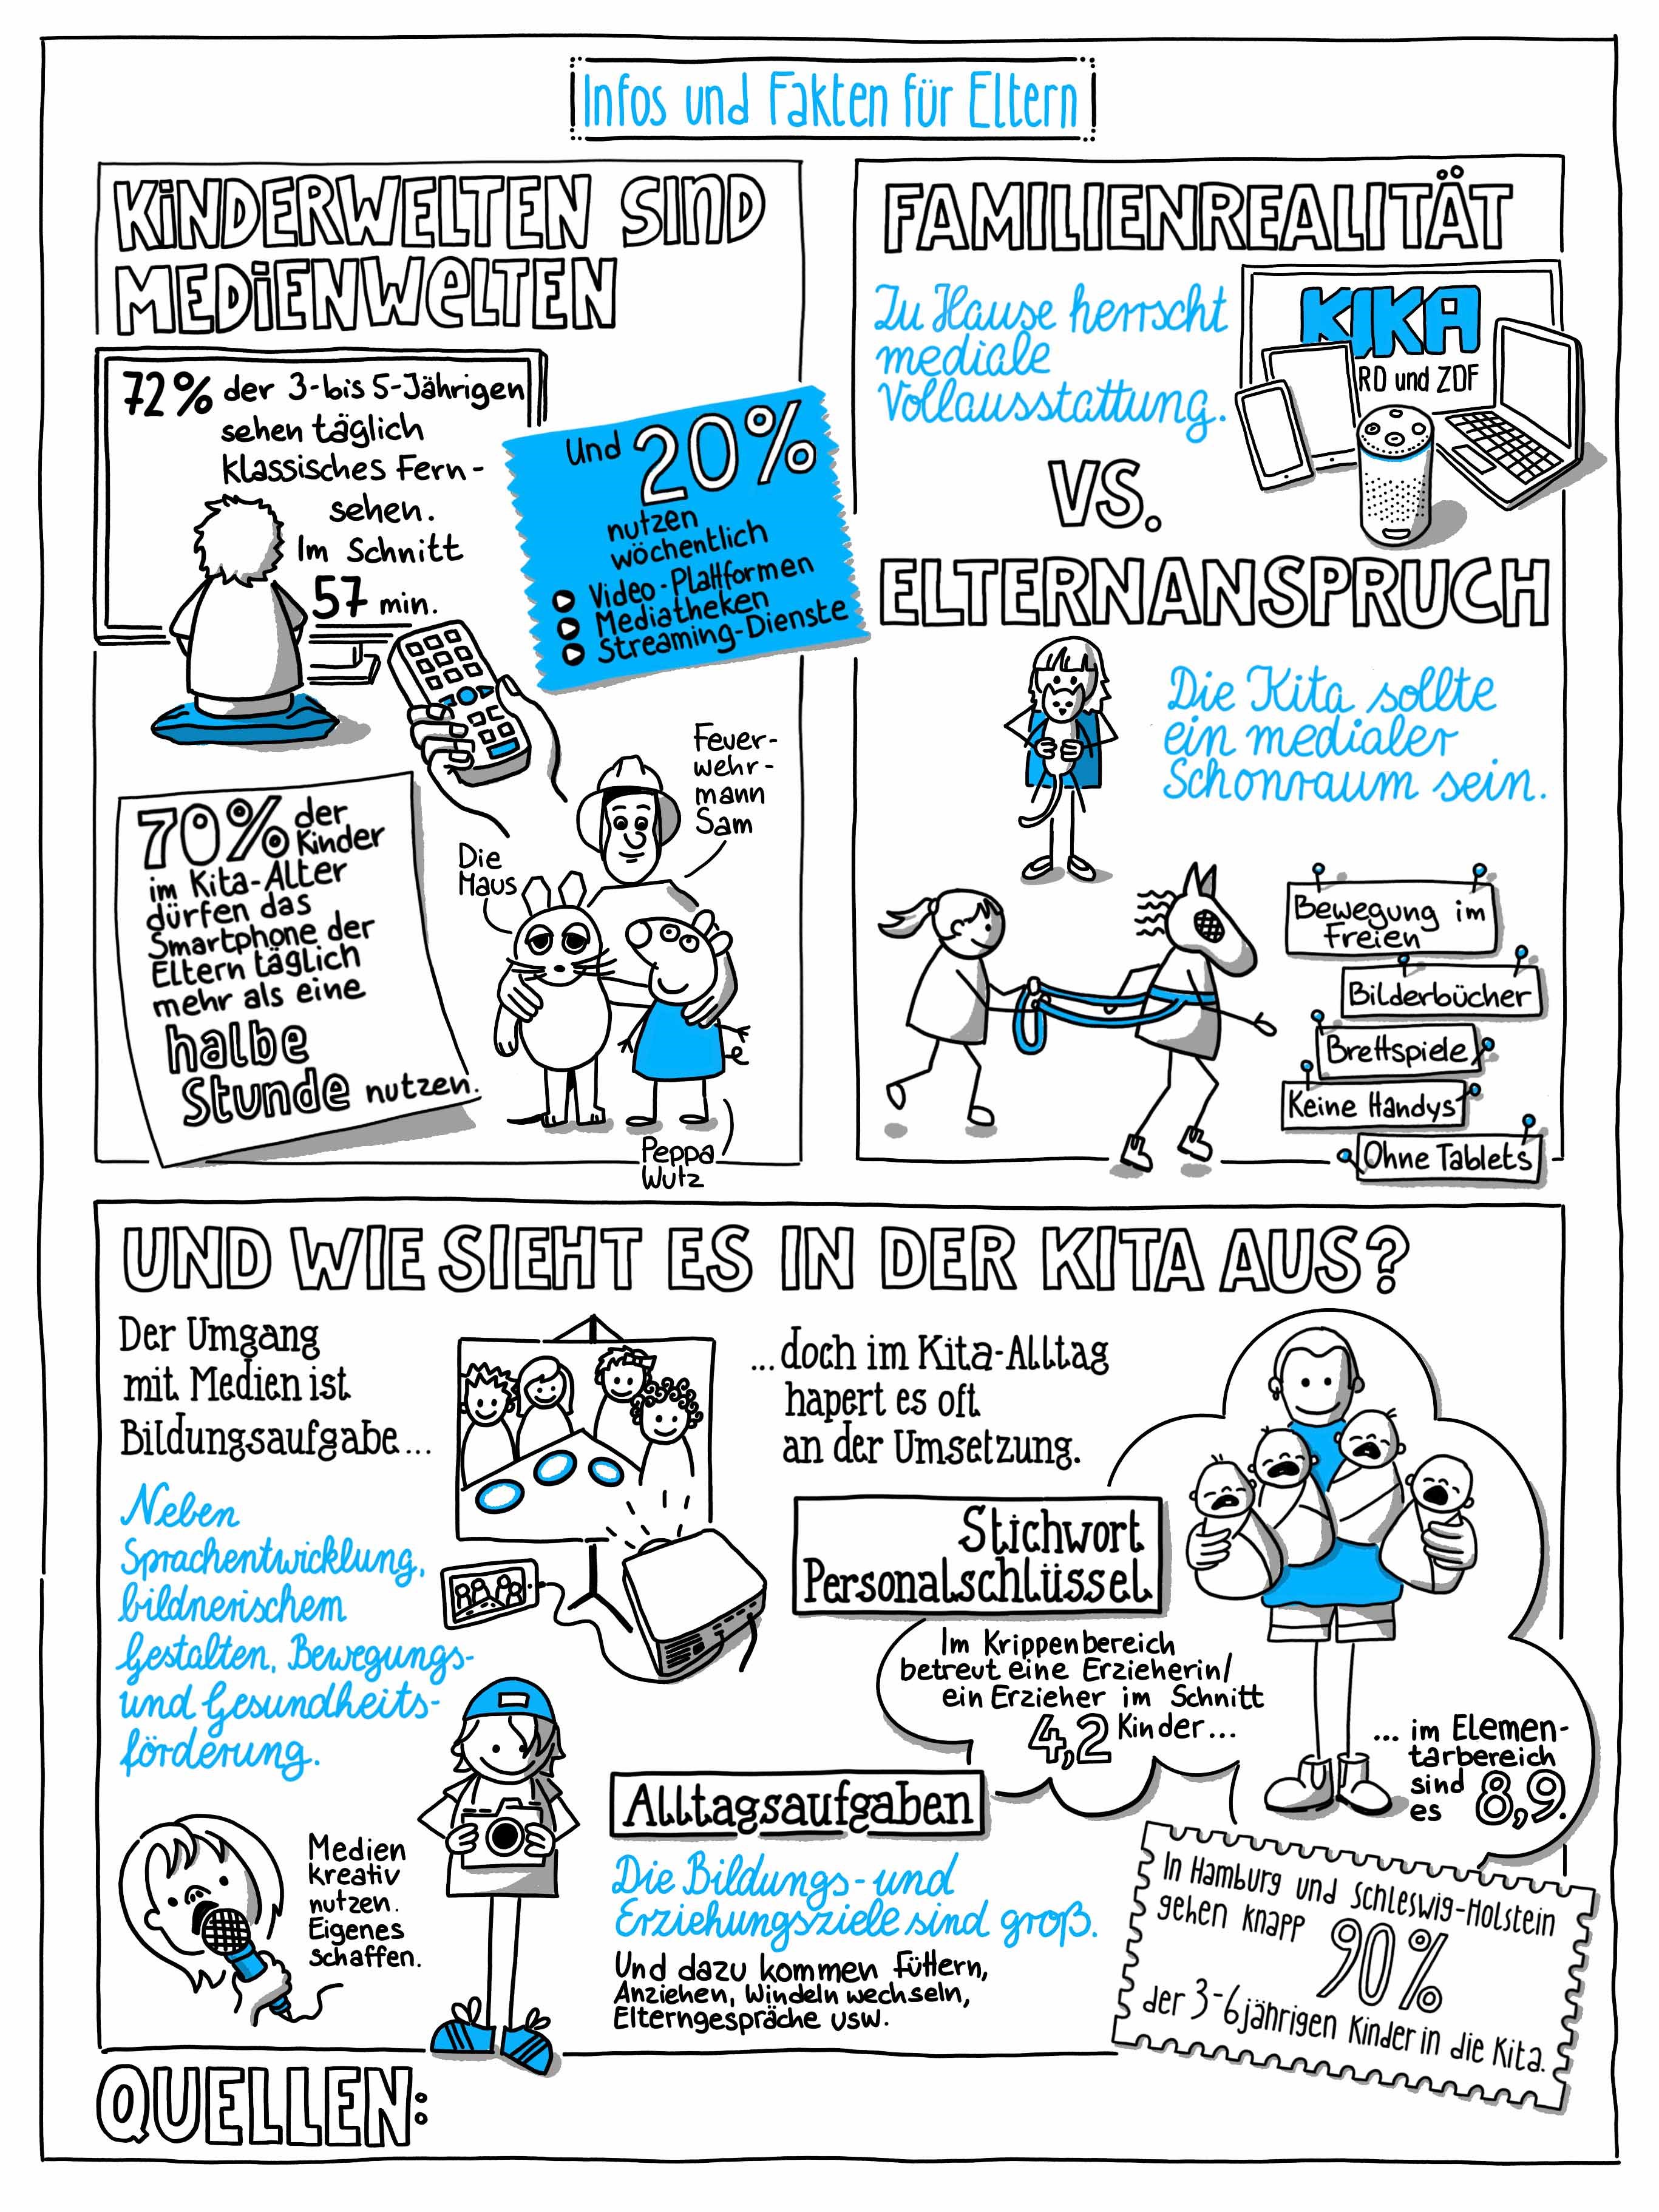 Infos und Fakten für Eltern
KINDERWELTEN SIND
MEDIENWELTEN
72% der 3-bis 5-Jährigen
sehen täglich
klassisches Fern-
sehen.
Im Schnitt
57 min.
Und 20%
nutzen
wöchentlich
Video-Plattformen
Mediatheken
Streaming-Dienste
70% der
Kinder
im Kita-Alter
dürfen das
Smartphone der
Eltern täglich
mehr als eine
halbe
Stunde nutzen.
Feuer-
wehr-
mann
Sam
Die
Maus
Peppa
Wutz
FAMILIENREALITÄT
Zu Hause herrscht
mediale
Vollausstattung.
KIKA
RD und ZDF
VS.
ELTERNANSPRUCH
Die Kita sollte
ein medialer
Schonraum sein.
Bewegung im
Freien
Bilderbücher
Brettspiele
Keine Handys
Ohne Tablets
UND WIE SIEHT ES IN DER KITA AUS?
Der Umgang
mit Medien ist
Bildungsaufgabe...
Neben
Sprachentwicklung,
bildnerischem
Gestalten, Bewegungs-
und Gesundheits-
förderung.
Medien
kreativ
nutzen.
Eigenes
schaffen.
...doch im Kita-Alltag
hapert es oft
an der Umsetzung.
Stichwort
Personalschlüssel
Im Krippenbereich
betreut eine Erzieherin/
ein Erzieher im Schnitt
4,2 Kinder...
... im Elemen-
tarbereich
sind
es 8,9.
Alltagsaufgaben
Die Bildungs- und
Erziehungsziele sind groß.
Und dazu kommen Füttern,
Anziehen, Windeln wechseln,
Elterngespräche usw.
In Hamburg und Schleswig-Holstein
gehen knapp 90%
der 3-6jährigen Kinder in die Kita.
QUELLEN: